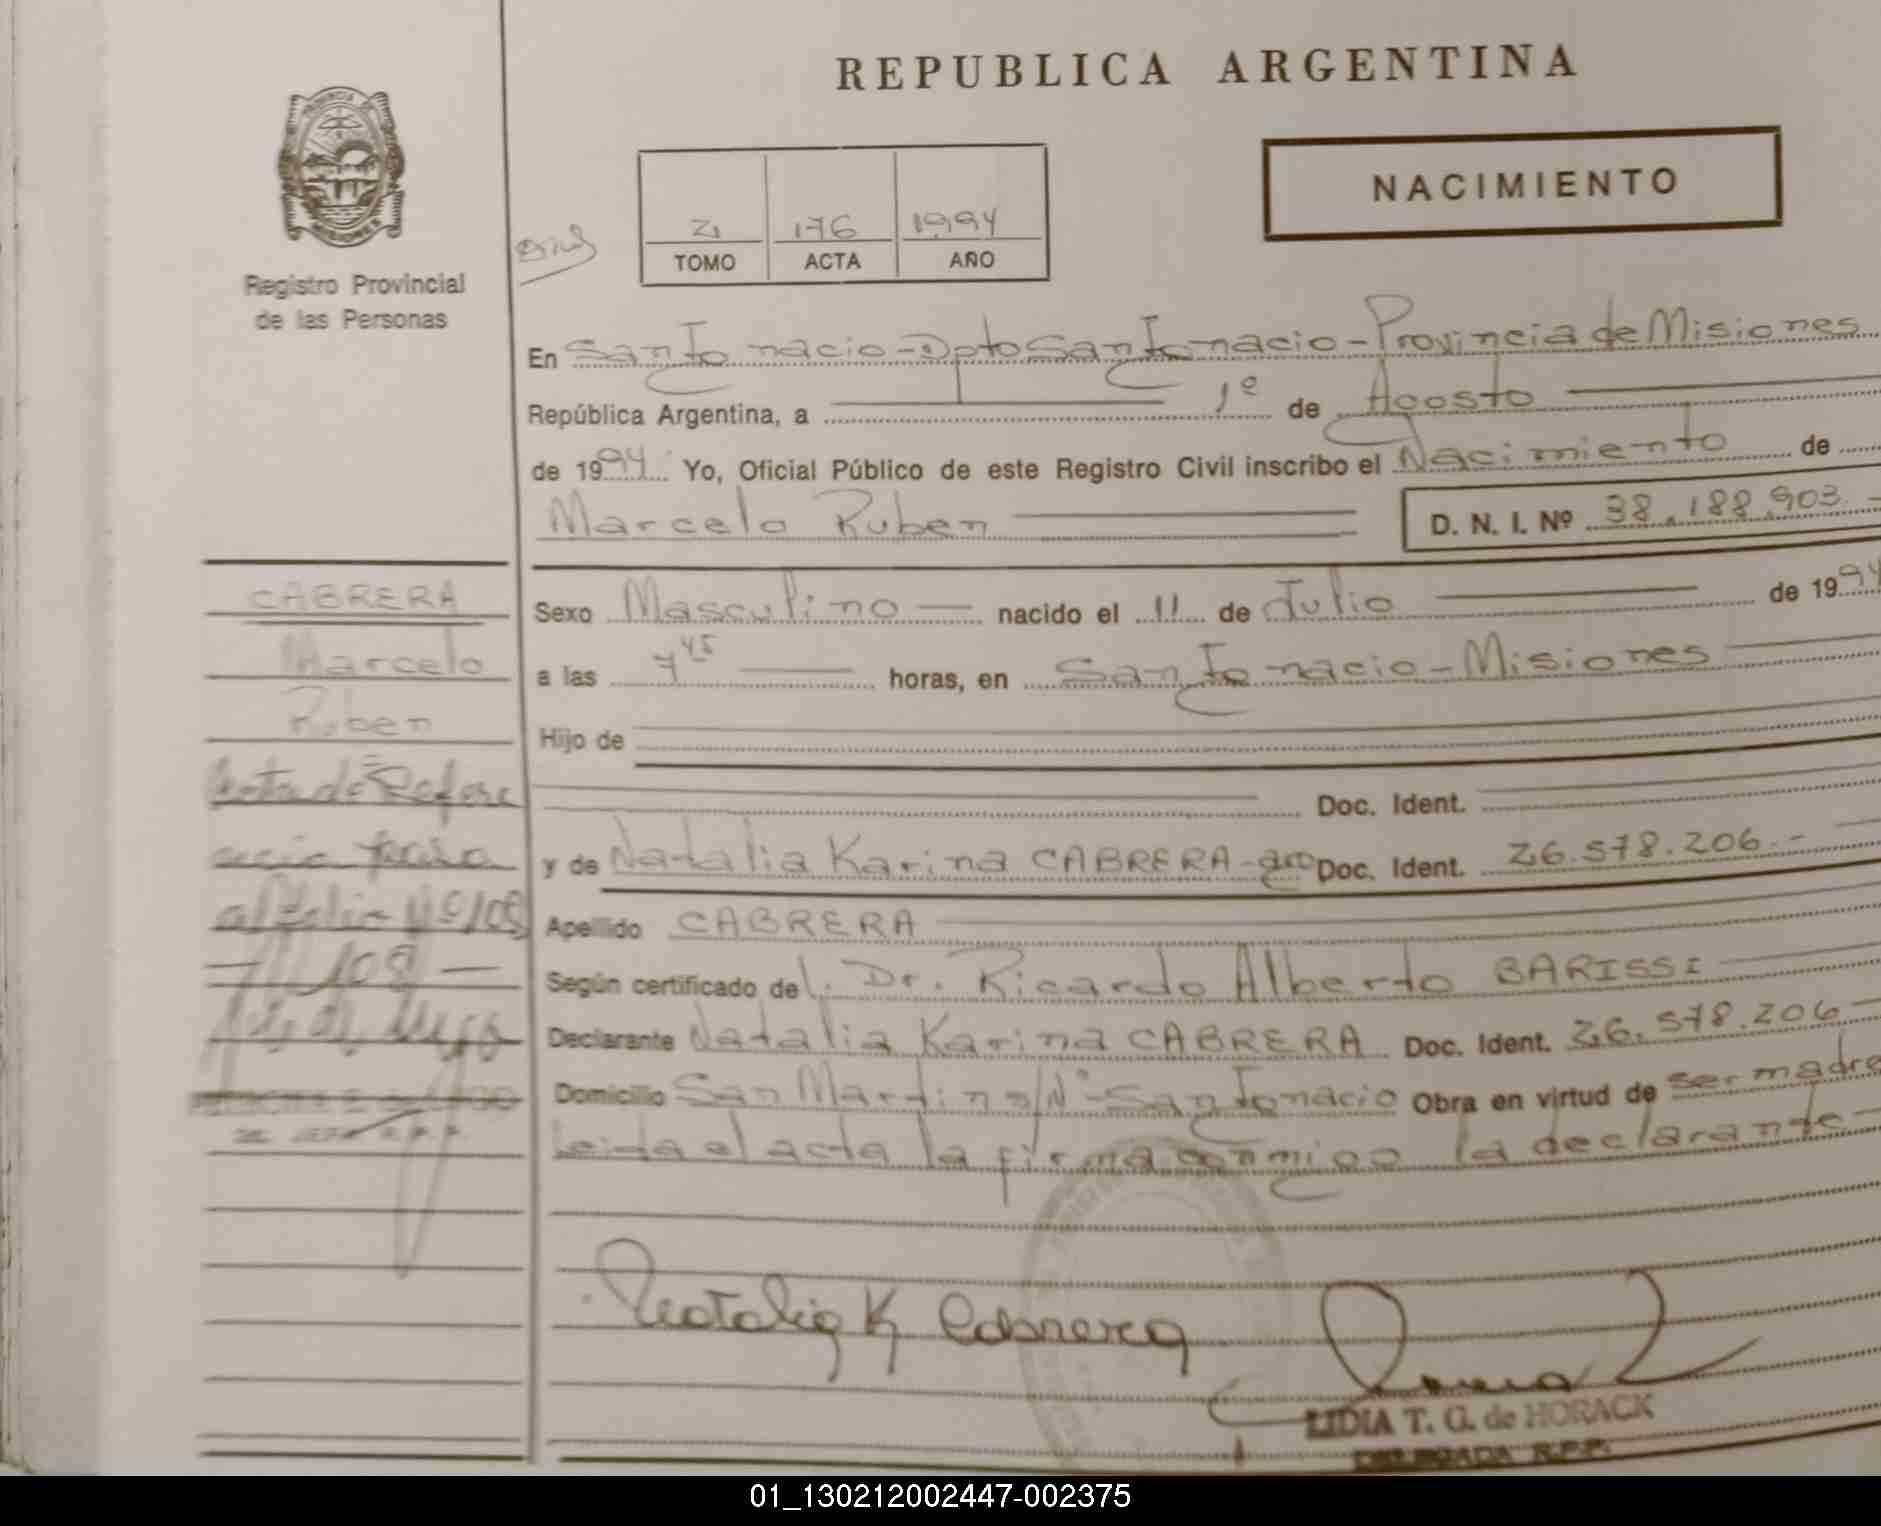 REPUBLICA ARGENTINA
PROVINCIA DE
MISIONES
Registro Provincial
de las Personas
NACIMIENTO
176 1994
TOMO ACTA AÑO
En San Ignacio - Dpto San Ignacio - Provincia de Misiones
República Argentina, a 1º de Agosto
de 1994 Yo, Oficial Público de este Registro Civil inscribo el Nacimiento de
Marcelo Ruben D. N. I. Nº 38.188.903.-
CABRERA
Marcelo
Ruben
Sexo Masculino nacido el 11 de Julio de 1994
a las 7 45 horas, en San Ignacio - Misiones
Hijo de
Doc. Ident.
y de Natalia Karina CABRERA - Doc. Ident. 26.578.206.-
Apellido CABRERA
Según certificado del Dr. Ricardo Alberto BARISSI
Declarante Natalia Karina CABRERA Doc. Ident. 26.578.206
Domicilio San Martin s/Nº - San Ignacio Obra en virtud de ser madre
Leida el acta la firma conmigo la declarante
Nota de Refere
ncia pasa
al folio Nº 108
108
Natalia K Cabrera
LIDIA T. G. de HORACK
DELEGADA R.P.P.
01_130212002447-002375